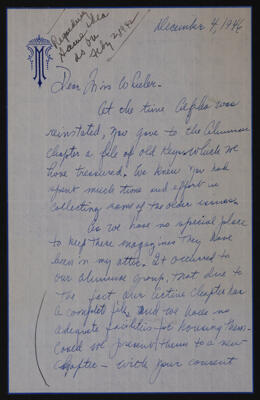 December 4, 1946
Regarding
same idea
as on
Feb 2, 1942
M
Dear Miss Wheeler -
At the time Alpha was
reinstated, you gave to the alumnae
chapter a file of old Keys which we
have treasured. We knew you had
spent much time and effort in
collecting some of the older issues.
As we have no special place
to keep these magazines they have
been in my attic. It occurred to
our alumnae group, that due to
the fact our active chapter has
a complete file and we have no
adequate facilities for housing them -
could we present them to a new
chapter - with your consent